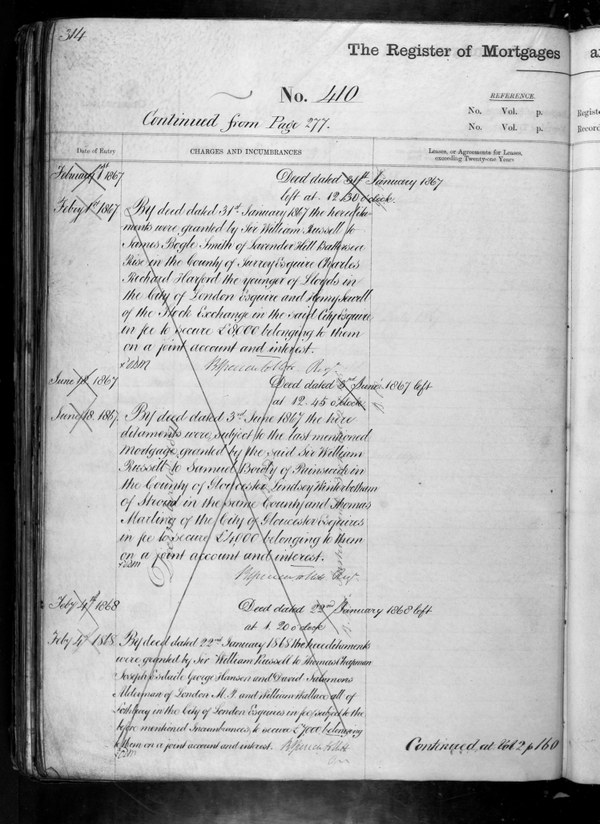 314
The Register of Mortgages
No. 410
REFERENCE.
Continued from Page 277.
No. Vol. p.
No. Vol. p.
Regist
Record
Date of Entry
CHARGES AND INCUMBRANCES
Leases, or Agreements for Leases, exceeding Twenty-one Years
February 1st 1867
Deed dated 31st January 1867
left at 12.30 o'clock.
Feby 1st 1867
By deed dated 31st January 1867 the heredita-
ments were granted by Sir William Russell to
James Bogle Smith of Lavender Hill Battersea
Rise in the County of Surrey Esquire Charles
Richard Harford the younger of Lloyds in
the City of London Esquire and Henry Sewell
of the Stock Exchange in the said City Esquire
in fee to secure £8,000 belonging to them
on a joint account and interest.
June 18 1867
Deed dated 3rd June 1867 left
at 12.45 o'clock
June 18 1867
By deed dated 3rd June 1867 the here
ditaments were, subject to the last mentioned
Mortgage granted by the said Sir William
Russell to Samuel Bowly of Painswick in
the County of Gloucester Lindsey Winterbotham
of Stroud in the same County and Thomas
Marling of the City of Gloucester Esquires
in fee to secure £4,000 belonging to them
on a joint account and interest.
Feby 4th 1868
Deed dated 22nd January 1868 left
at 1.20 o'clock
Feby 4th 1868
By deed dated 22nd January 1868 the hereditaments
were granted by Sir William Russell to Thomas Chapman
Joseph Esdaile George Hansen and David Salomons
Alderman of London M.P. and William Wallace all of
Lothbury in the City of London Esquires in fee subject to the
before mentioned Incumbrances, to secure £7,000 belonging
to them on a joint account and interest.
Continued at Vol 2 p 160